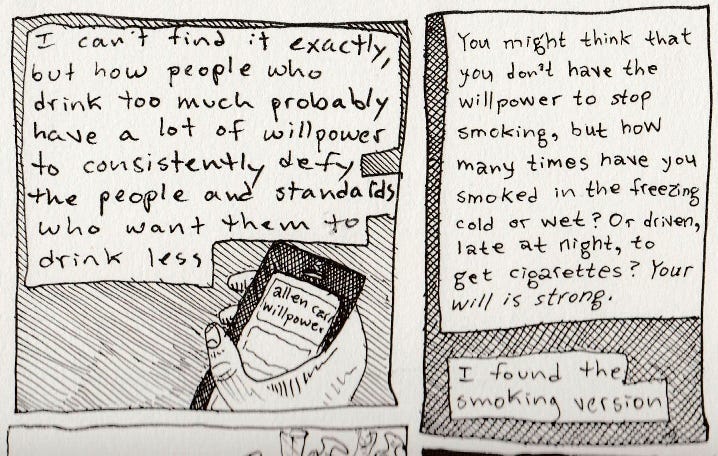 I can't find it exactly,
but how people who
drink too much probably
have a lot of willpower
to consistently defy
the people and standards
who want them to
drink less
allen carr
willpower
You might think that
you don't have the
willpower to stop
smoking, but how
many times have you
smoked in the freezing
cold or wet? Or driven,
late at night, to
get cigarettes? Your
will is strong.
I found the
smoking version